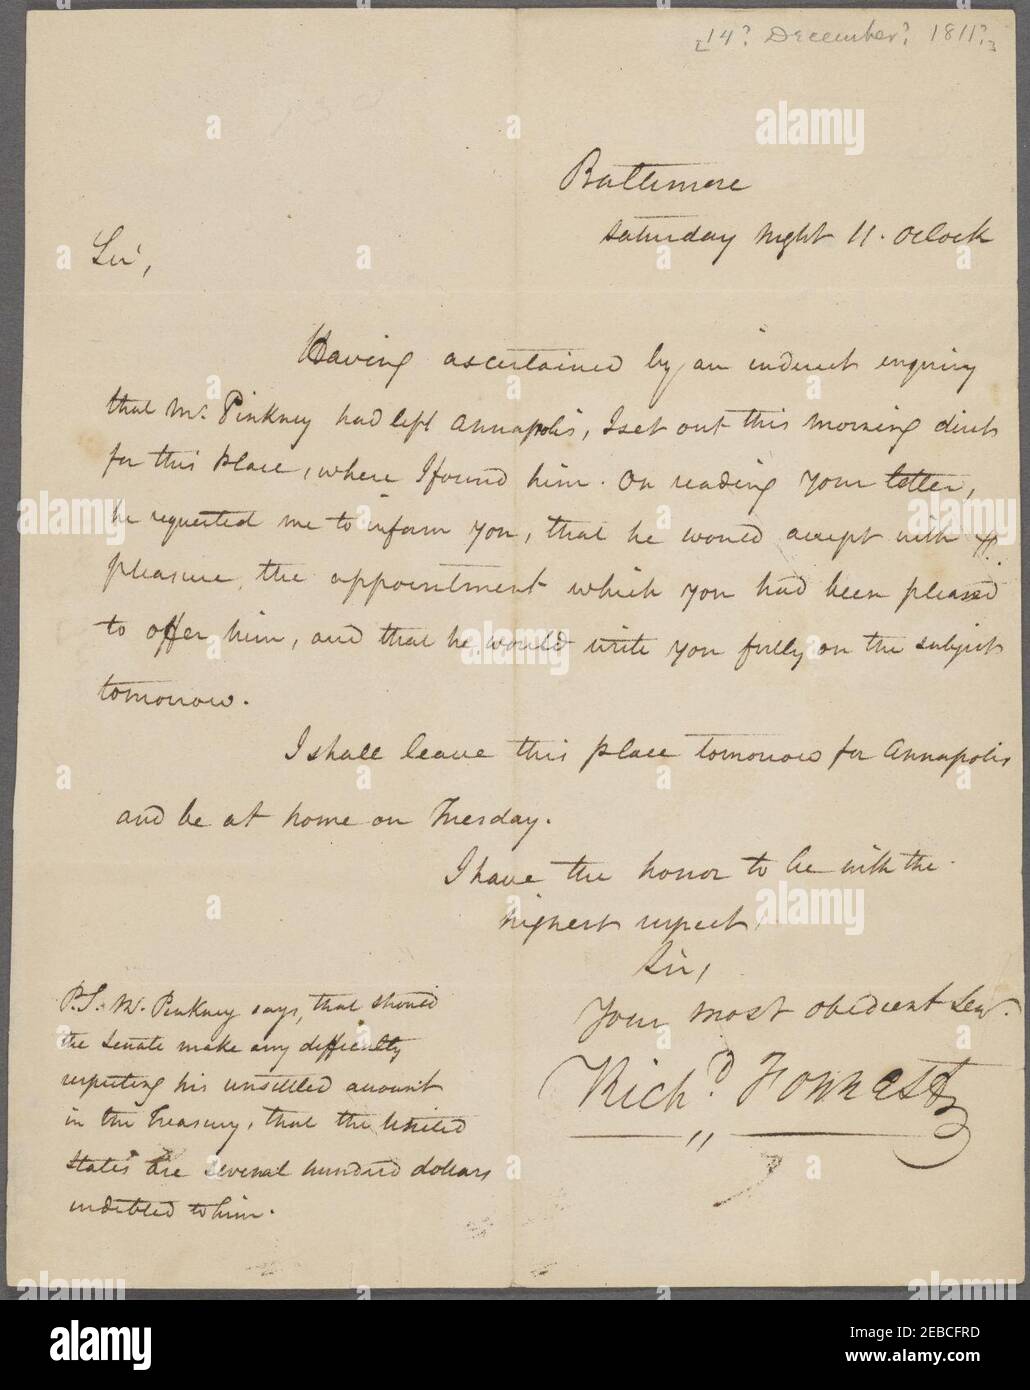 [14? December? 1811?]
Baltimore
Saturday night 11. oClock
Sir,
Having ascertained by an indirect enquiry
that Mr. Pinkney had left Annapolis, I set out this morning direct
for this place, where I found him. On reading your letter,
he requested me to inform you, that he would accept with
pleasure, the appointment which you had been pleased
to offer him, and that he would write you fully on the subject
tomorrow.
I shall leave this place tomorrow for Annapolis
and be at home on Tuesday.
I have the honor to be with the
highest respect,
Sir,
Your most obedient Serv.
Rich.d Forrest
P.S. Mr. Pinkney says, that should
the Senate make any difficulty
respecting his unsettled account
in the Treasury, that the United
States are several hundred dollars
indebted to him.
alamy
Image ID: 2EBCFRD
www.alamy.com